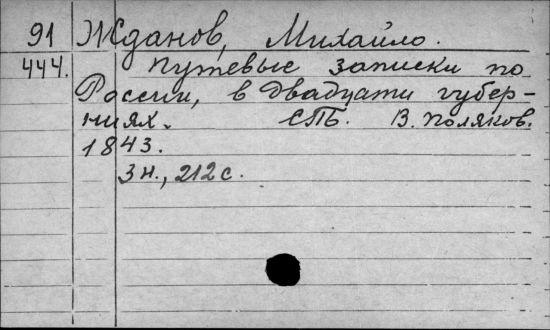 91 Жданов, Михайло.
444. Путевые записки по
России, в двадцати губер-
ниях. СПБ. В. Поляков.
1843.
3 н., 212 с.